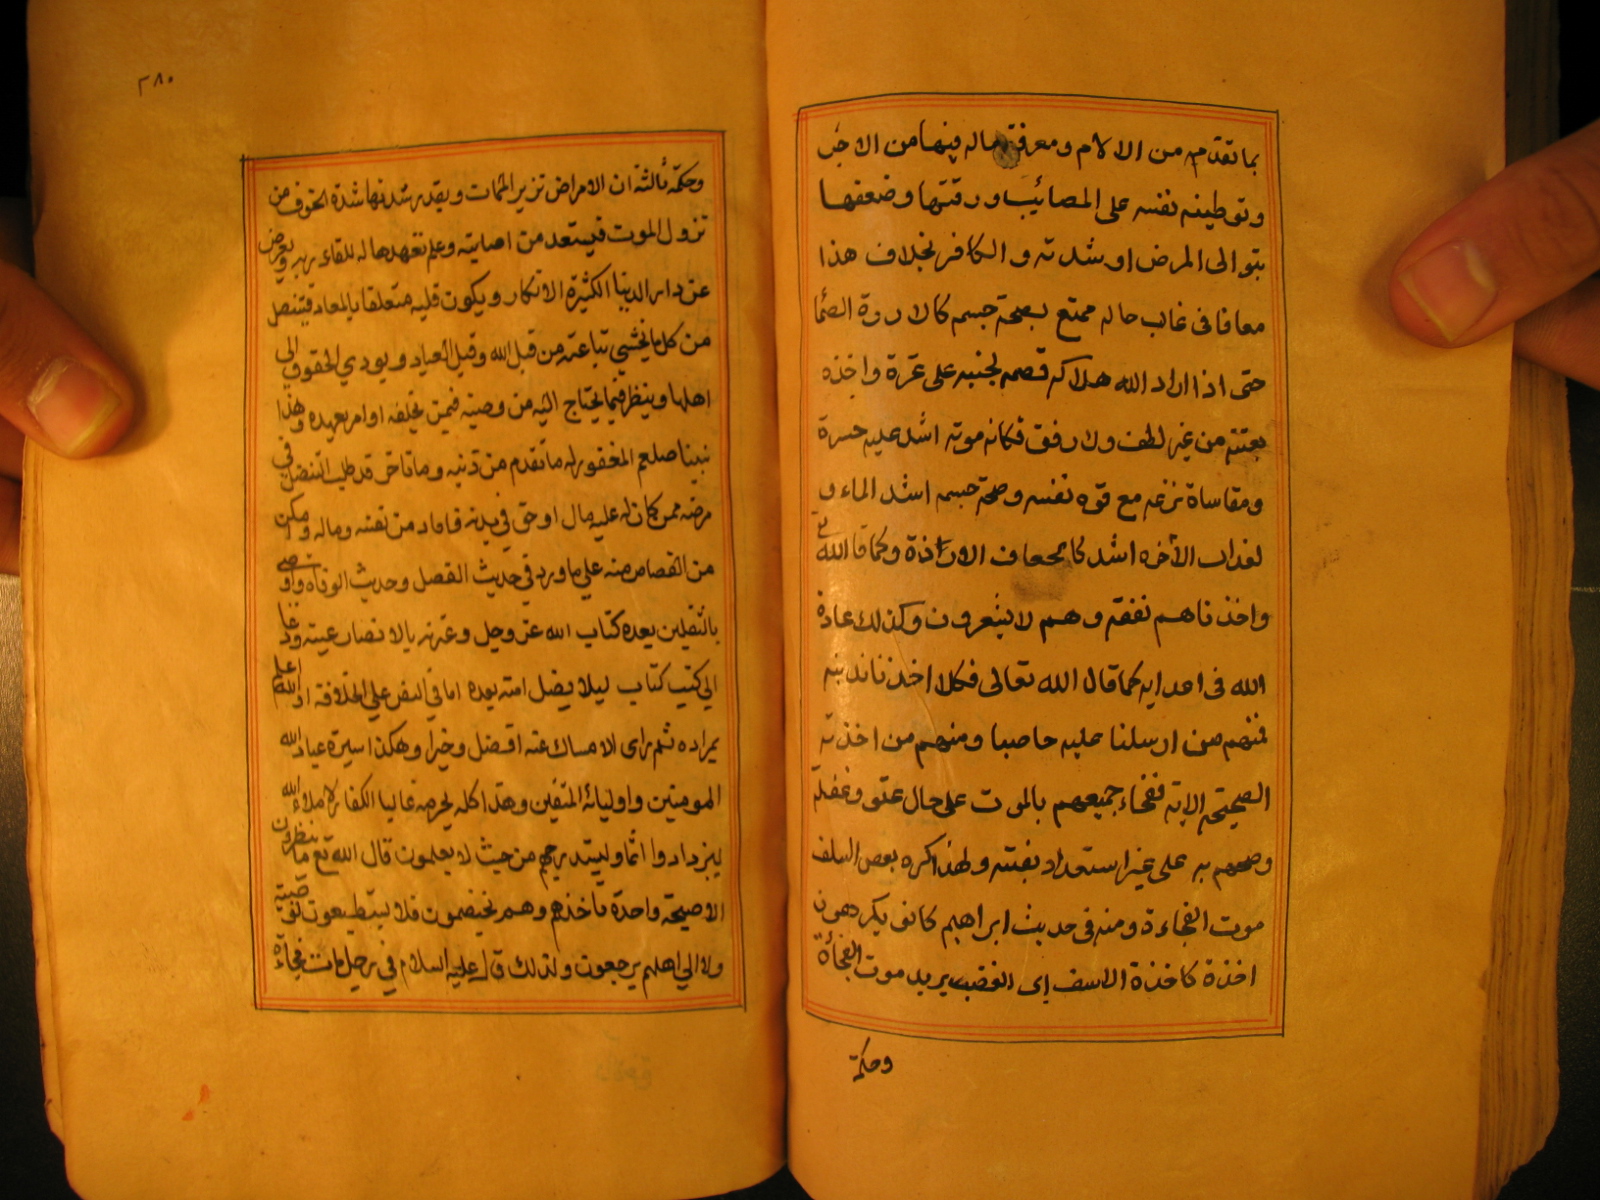 بما تقدمه من الالام ومعرفة ماله فيها من الاجر
وتوطينه نفسه على المصائب ورقتها وضعفها
بتوالى المرض او شدته والكافر بخلاف هذا
معافا فى غاب حاله ممتع بصحة جسمه كالارزة الصما
حتى اذا اراد الله هلاكه قصمه لجنبه على غرة واخذه
بغتة من غير لطف ولا رفق فكانه موته اشد عليه حسرة
ومقاساة نزعه مع قوه نفسه وصحة جسمه اشد الماء و
لعذاب الأخره اشد كانجعاف الارزة وكما قا الله تع
واخذناهم بغتة وهم لا يشعرون وكذلك عادة
الله فى اعدايه كما قال الله تعالى فكلا اخذنا بذنبه
فمنهم من ارسلنا عليه حاصبا ومنهم من اخذته
الصيحة الاية ففجاء جميعهم بالموت على حال عتو وغفلة
وصبحهم به على غير استعداد بغتة ولهذا كره بعض السلف
موت الفجاءة ومنه فى حديث ابراهيم كانو يكرهون
اخذة كاخذة الاسف اى الغضب يريد موت الفجأة
وحكمة
٣٨٠
وحكمة ثالثة ان الامراض نزير الممات وبقدر شدتها شدة الخوف من
نزول الموت فيستعد من اصابته وعلم تعهدها له للقاء ربه ويعرض
عن دار الدنيا الكثيرة الانكار ويكون قلبه متعلقا بالمعاد فيتنصل
من كل ما يخشي تباعته من قبل الله وقبل العباد ويودي الحقوق الى
اهلها وينظر فيما يحتاج اليه من وصية فيمن يخلفه او امر يعهده وهذا
نبينا صلعم المغفور له ما تقدم من ذنبه وما تاخر قد طلب التنصل في
مرضه ممن كان له عليه مال او حق في بدنه فاقاد من نفسه وماله ومكن
من القصاص منه علي ما ورد في حديث الفضل وحديث الوفاة واوصى
بالثقلين بعده كتاب الله عز وجل وعترته بالانصار عيبته ودعا
الي كتب كتاب ليلا يضل امته بعده اما في النص علي الخلافة او الله اعلم
بمراده ثم راى الامساك عنه افضل وخيرا وهكذا سيرة عباد الله
المومنين واوليائه المتقين وهذا كله يحرمه غالبا الكفار لاملاء الله
ليزدادوا اثما وليستدرجهم من حيث لا يعلمون قال الله تع ما ينظرون
الا صيحة واحدة تاخذهم وهم يخصمون فلا يستطيعون توصية
ولا الي اهلهم يرجعون ولذلك قال عليه السلام في رجل مات فجاءة